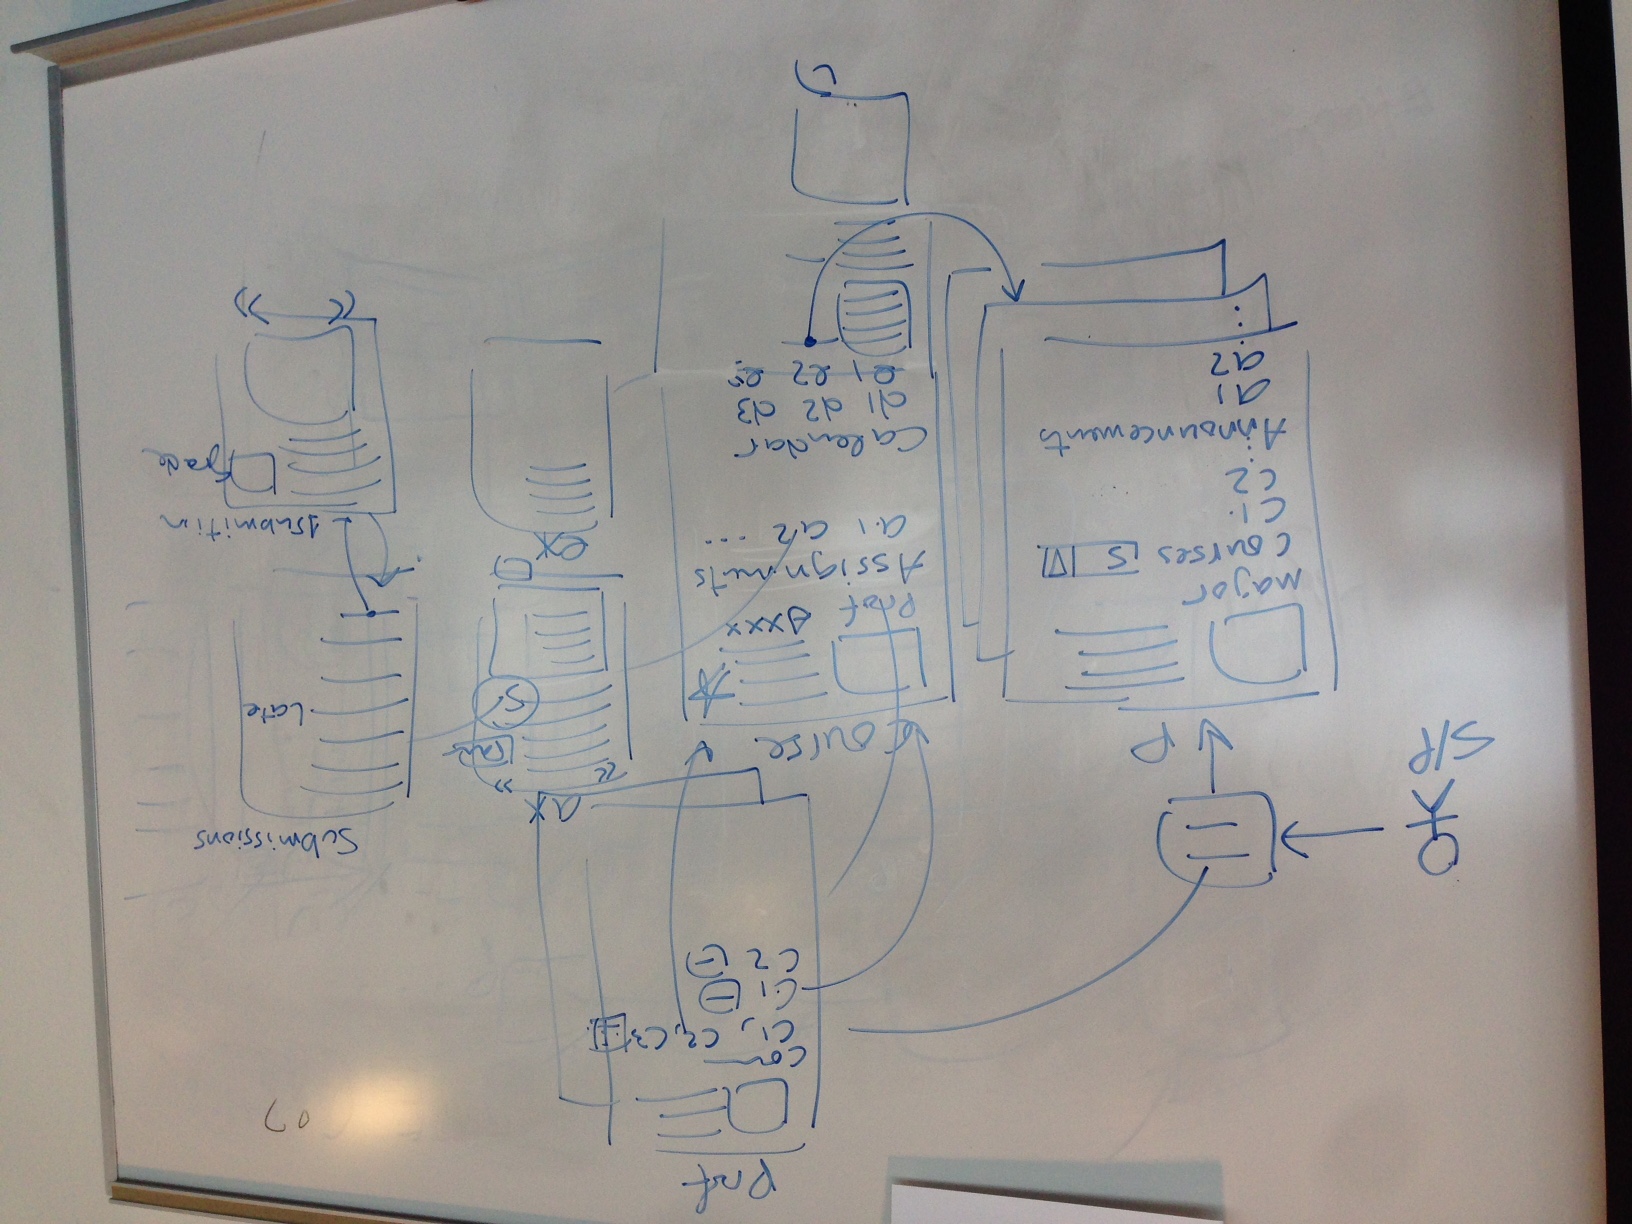 Prof
07
C1, C2, C3
C1 -
C2 -
S/P
P
major
courses S
C1
C2
Announcements
a1
a2
Course
Prof
Assignments
a1 a2 ...
Calendar
d1 d2 d3
e1 e2
ax
<< >>
S
ex
Submissions
Late
1submition
grade
<< >>